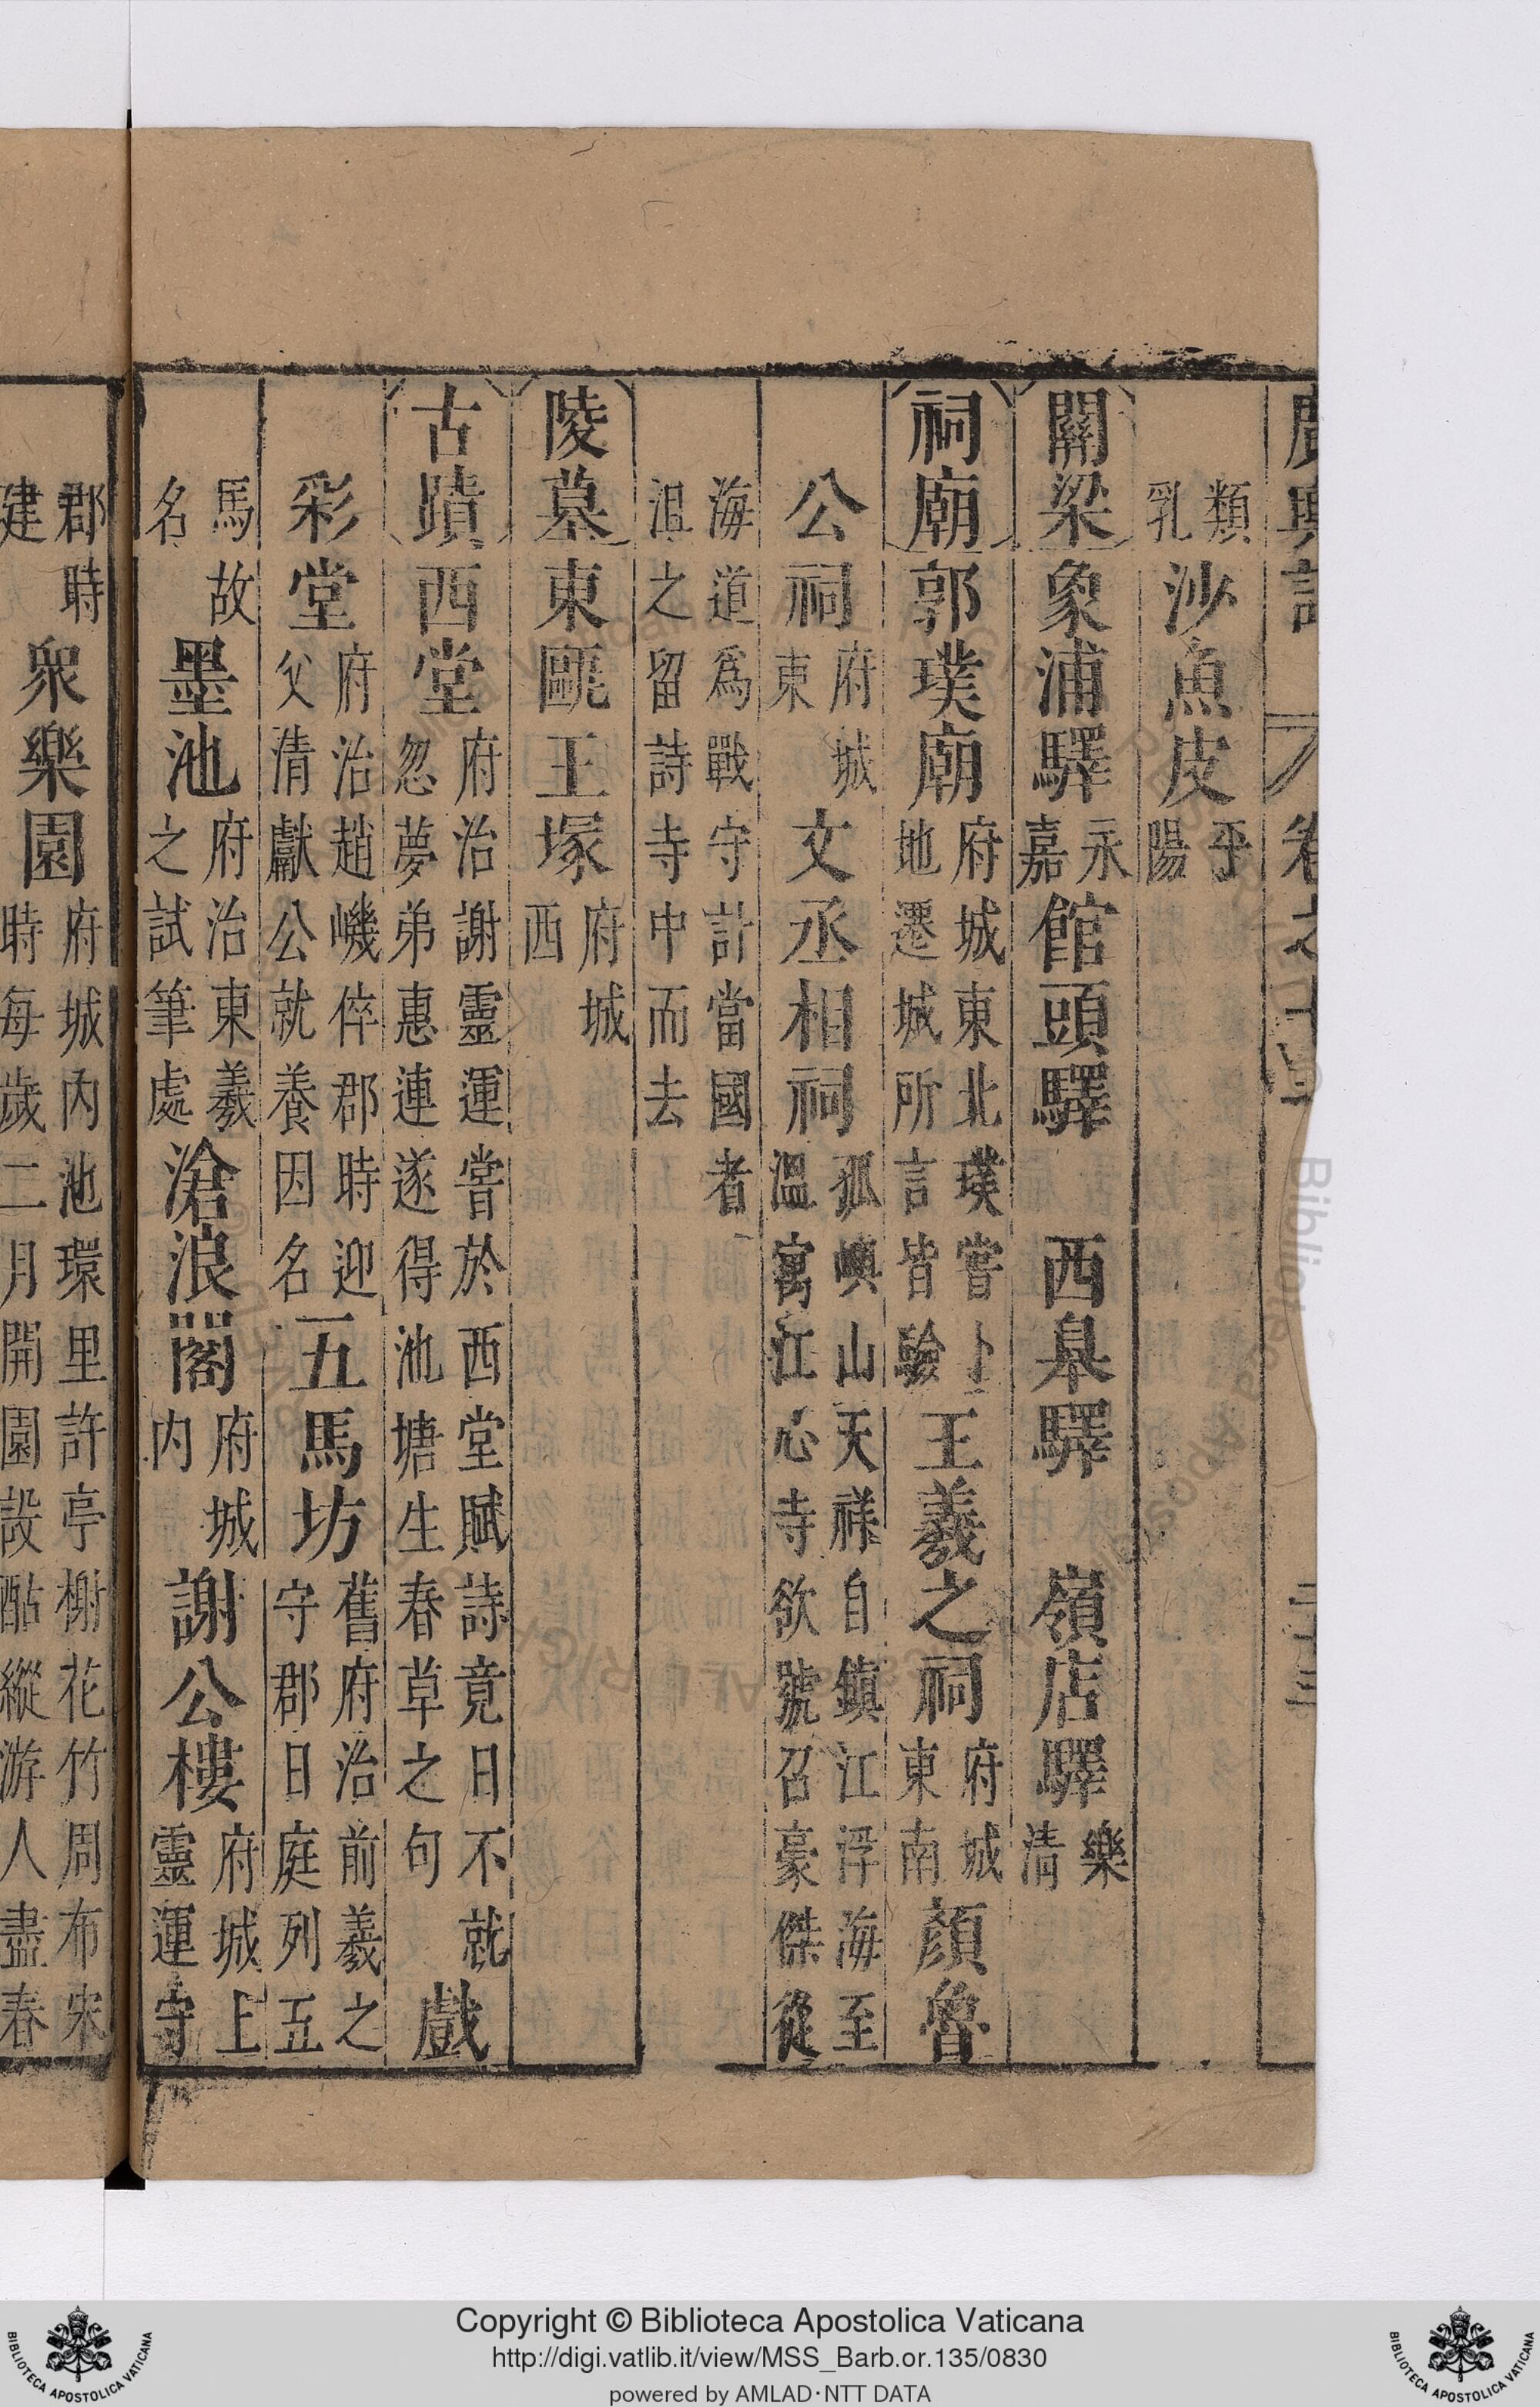 廣輿記 卷之十
類乳 沙魚皮 平陽
關梁 象浦驛 永嘉 館頭驛 西皋驛 嶺店驛 樂清
祠廟 郭璞廟 府城東北璞嘗卜地遷城所言皆驗 王羲之祠 府城東南 顏魯
公祠 府城東 文丞相祠 孤嶼山天祥自鎮江浮海至溫寓江心寺欲號召豪傑從
海道爲戰守計當國者沮之留詩寺中而去
陵墓 東甌王塚 府城西
古蹟 西堂 府治謝靈運嘗於西堂賦詩竟日不就忽夢弟惠連遂得池塘生春草之句 戲
彩堂 府治趙㠬倅郡時迎父清獻公就養因名 五馬坊 舊府治前羲之守郡日庭列五
馬故名 墨池 府治東羲之試筆處 滄浪閣 府城內 謝公樓 府城上靈運守
郡時建 衆樂園 府城內池環里許亭榭花竹周布宋時每歲二月開園設酤縱游人盡春
Copyright © Biblioteca Apostolica Vaticana
http://digi.vatlib.it/view/MSS_Barb.or.135/0830
powered by AMLAD·NTT DATA
BIBLIOTECA APOSTOLICA VATICANA
BIBLIOTECA APOSTOLICA VATICANA